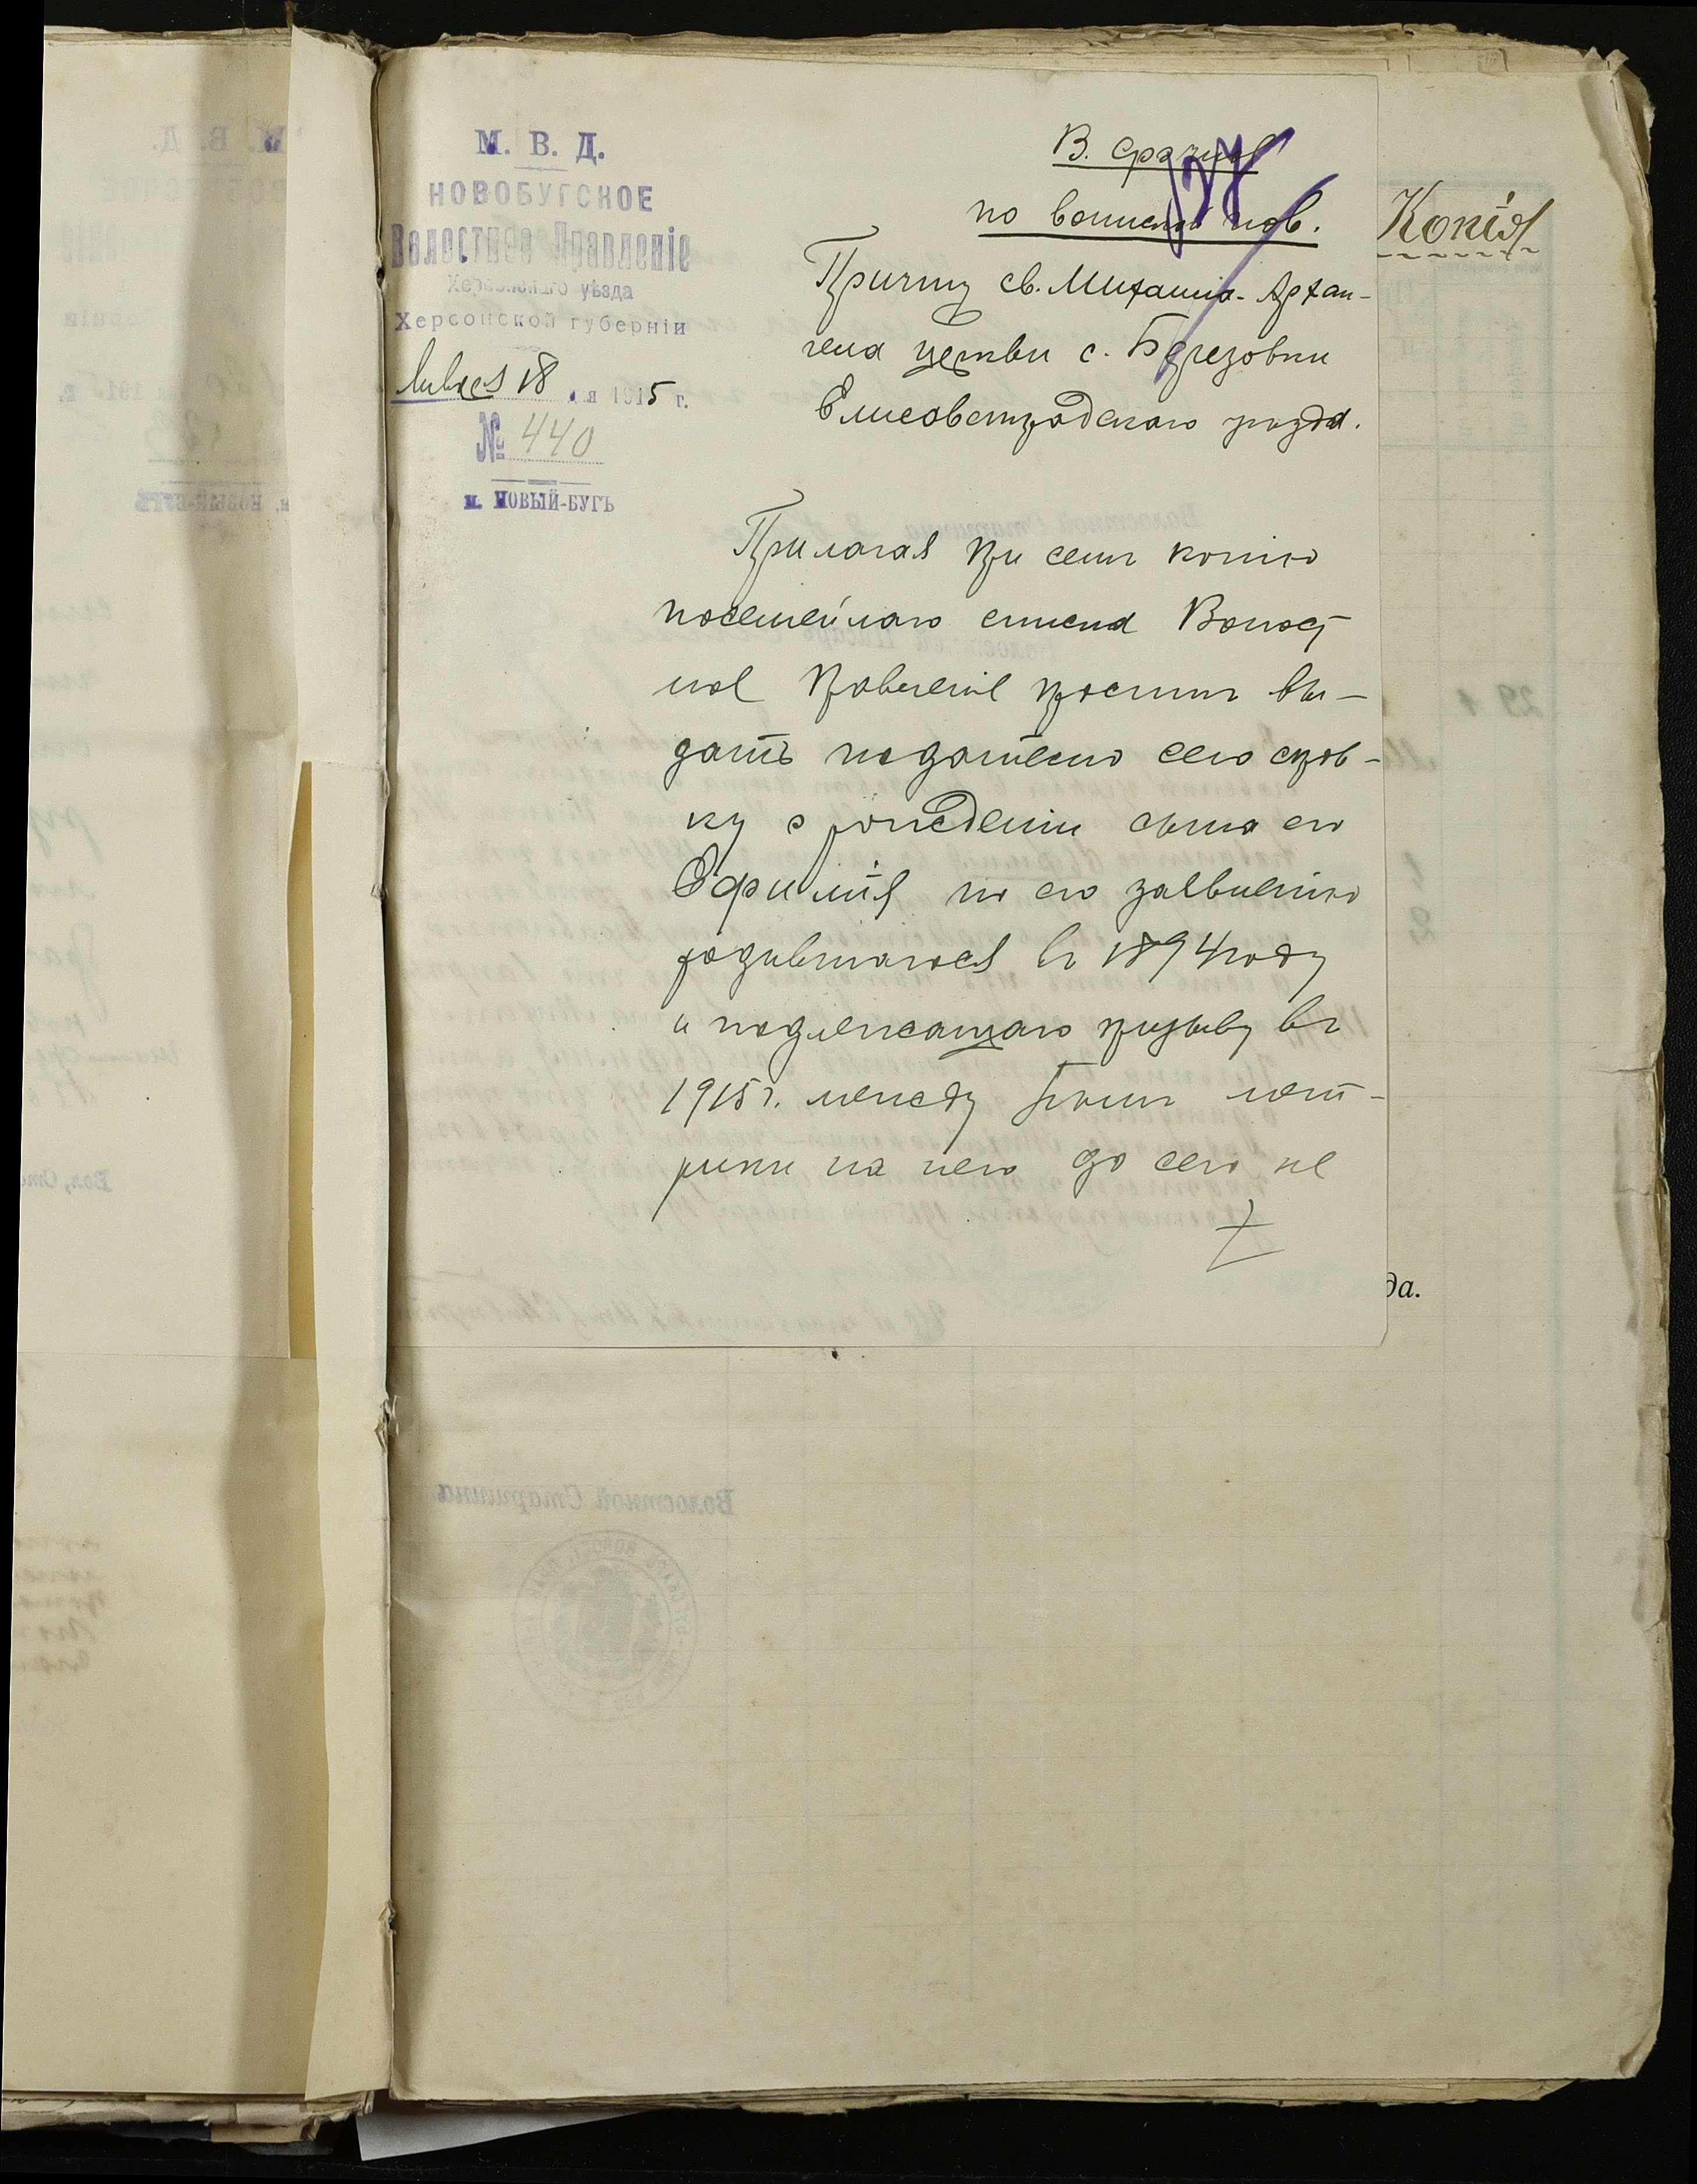 М. В. Д.
НОВОБУГСКОЕ
Волостное Правленіе
Херсонскаго уѣзда
Херсонской губерніи
Января 18 дня 1915 г.
№ 440
м. НОВЫЙ-БУГЪ
В. срочно
по воинской пов.
Копія
Причту св. Михаило-Архан-
гела церкви с. Березовки
Елисаветградскаго уезда.
Прилагая при семъ копію
посемейнаго списка Волост
ное Правленіе проситъ вы-
дать подателю сего справ-
ку о рожденіи сына его
Ефимія по его заявленію
родившагося въ 1894 году
и подлежащаго призыву въ
1915 г. между темъ мет-
рики на него до сего не
да.
Волостной Старшина